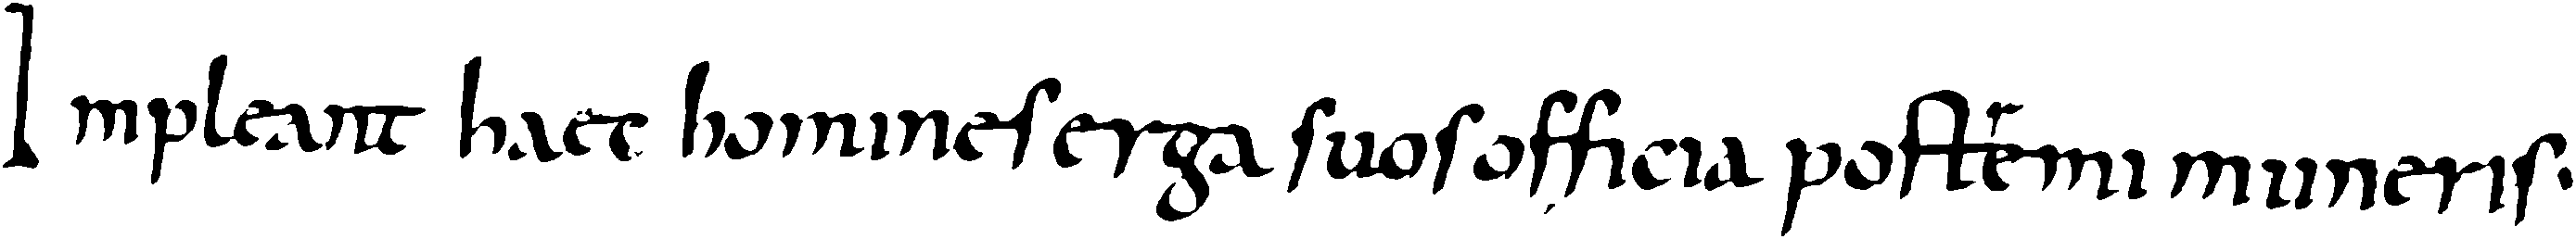 Impleant haec homines erga suos officia postremi muneris.